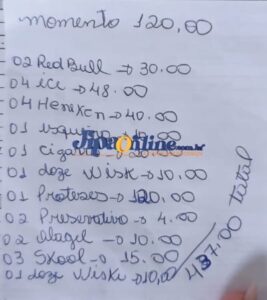 momento 120,00
02 Red Bull → 30.00
04 ice → 48.00
04 Heneken → 40.00
01 isqueiro
JipaOnline.com.br
01 cigarro
01 doze Wisk → 10,00
01 Proteses → 120,00
02 Preservativo → 4.00
02 Halagel → 10.00
03 Skool → 15.00
01 doze Wiski → 10,00
437,00 total